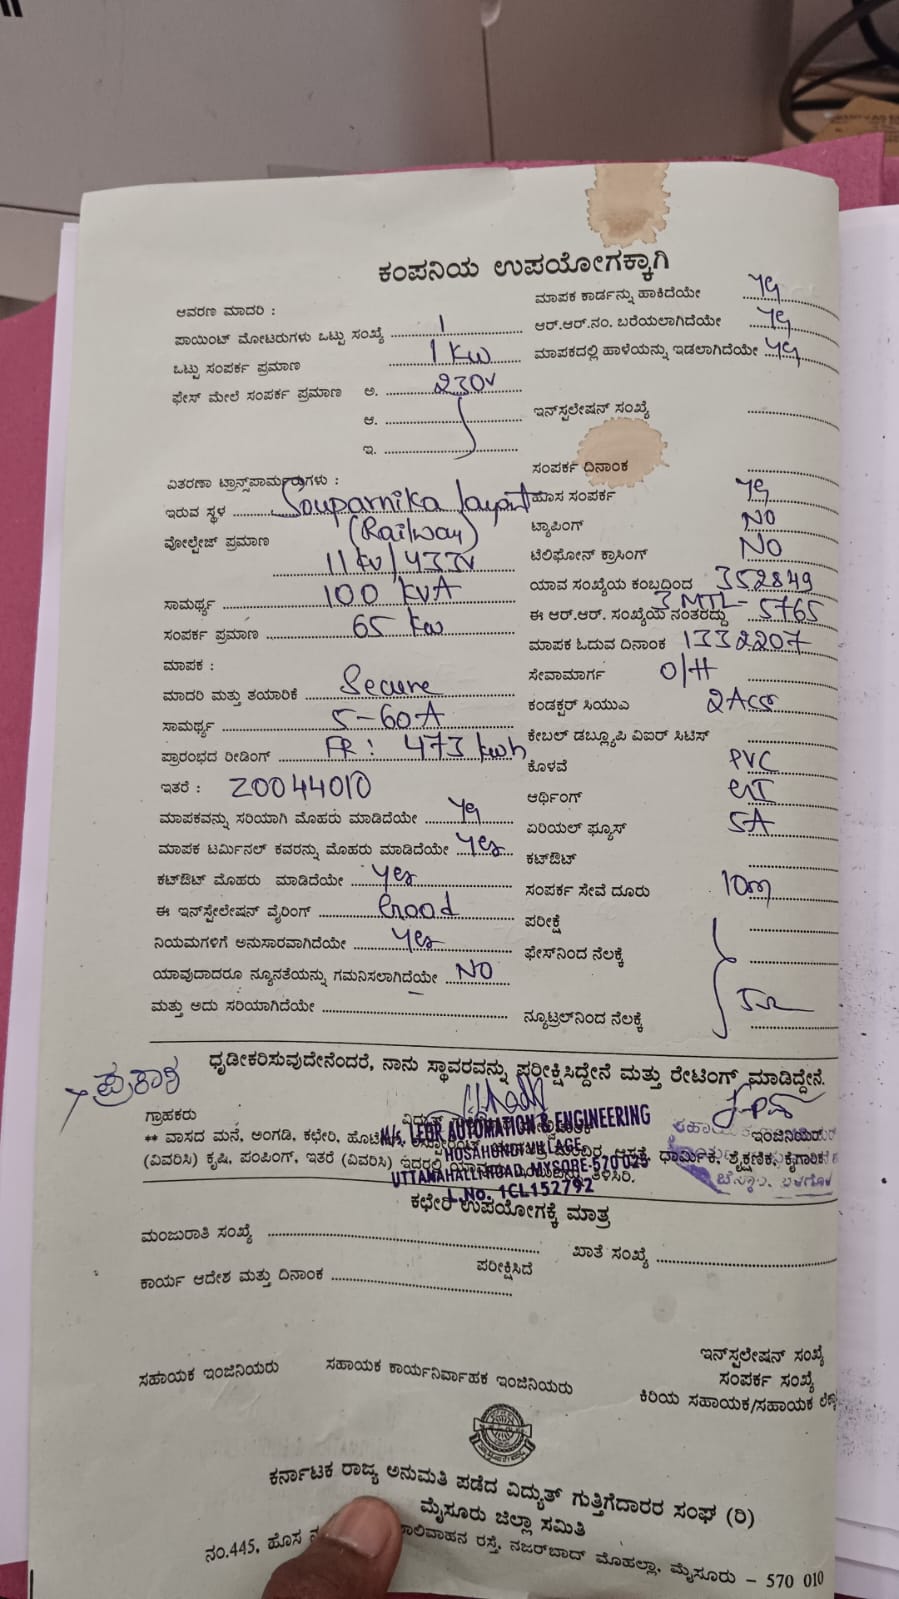 ಕಂಪನಿಯ ಉಪಯೋಗಕ್ಕಾಗಿ
ಆವರಣ ಮಾದರಿ :
ಮಾಪಕ ಕಾರ್ಡನ್ನು ಹಾಕಿದೆಯೇ
ಪಾಯಿಂಟ್ ಮೋಟರುಗಳು ಒಟ್ಟು ಸಂಖ್ಯೆ 1
ಆರ್.ಆರ್.ನಂ. ಬರೆಯಲಾಗಿದೆಯೇ
ಒಟ್ಟು ಸಂಪರ್ಕ ಪ್ರಮಾಣ 1 kw
ಮಾಪಕದಲ್ಲಿ ಹಾಳೆಯನ್ನು ಇಡಲಾಗಿದೆಯೇ
ಫೇಸ್ ಮೇಲೆ ಸಂಪರ್ಕ ಪ್ರಮಾಣ ಅ. 230v
ಆ.
ಇನ್‌ಸ್ಪಲೇಷನ್ ಸಂಖ್ಯೆ
ಇ.
ಸಂಪರ್ಕ ದಿನಾಂಕ
ವಿತರಣಾ ಟ್ರಾನ್ಸ್‌ಪಾರ್ಮರುಗಳು :
ಇರುವ ಸ್ಥಳ Souparnika layout
(Railway)
ಹೊಸ ಸಂಪರ್ಕ
ವೋಲ್ಟೇಜ್ ಪ್ರಮಾಣ
11kv/433v
ಟ್ಯಾಪಿಂಗ್ NO
ಟೆಲಿಫೋನ್ ಕ್ರಾಸಿಂಗ್ NO
ಸಾಮರ್ಥ್ಯ 100 KVA
ಯಾವ ಸಂಖ್ಯೆಯ ಕಂಬದಿಂದ 352849
ಸಂಪರ್ಕ ಪ್ರಮಾಣ 65 kw
ಈ ಆರ್.ಆರ್. ಸಂಖ್ಯೆಯ ನಂತರದ್ದು 3MTL-5765
ಮಾಪಕ :
ಮಾಪಕ ಓದುವ ದಿನಾಂಕ 1332207
ಮಾದರಿ ಮತ್ತು ತಯಾರಿಕೆ Secure
ಸೇವಾಮಾರ್ಗ O/H
ಸಾಮರ್ಥ್ಯ 5-60A
ಕಂಡಕ್ಟರ್ ಸಿಯುಎ
ಪ್ರಾರಂಭದ ರೀಡಿಂಗ್ FR: 473 kwh
ಕೇಬಲ್ ಡಬ್ಲ್ಯೂಪಿ ವಿಐರ್ ಸಿಟಿಸ್
ಕೊಳವೆ PVC
ಇತರೆ : Z0044010
ಆರ್ಥಿಂಗ್ GI
ಮಾಪಕವನ್ನು ಸರಿಯಾಗಿ ಮೊಹರು ಮಾಡಿದೆಯೇ
ಏರಿಯಲ್ ಫ್ಯೂಸ್ 5A
ಮಾಪಕ ಟರ್ಮಿನಲ್ ಕವರನ್ನು ಮೊಹರು ಮಾಡಿದೆಯೇ yes
ಕಟ್‌ಔಟ್
ಕಟ್‌ಔಟ್ ಮೊಹರು ಮಾಡಿದೆಯೇ yes
ಸಂಪರ್ಕ ಸೇವೆ ದೂರು 10m
ಈ ಇನ್‌ಸ್ಪೇಲೇಷನ್ ವೈರಿಂಗ್ Good
ಪರೀಕ್ಷೆ
ನಿಯಮಗಳಿಗೆ ಅನುಸಾರವಾಗಿದೆಯೇ yes
ಫೇಸ್‌ನಿಂದ ನೆಲಕ್ಕೆ
ಯಾವುದಾದರೂ ನ್ಯೂನತೆಯನ್ನು ಗಮನಿಸಲಾಗಿದೆಯೇ NO
ಮತ್ತು ಅದು ಸರಿಯಾಗಿದೆಯೇ
ನ್ಯೂಟ್ರಲ್‌ನಿಂದ ನೆಲಕ್ಕೆ
ಧೃಡೀಕರಿಸುವುದೇನೆಂದರೆ, ನಾನು ಸ್ಥಾವರವನ್ನು ಪರೀಕ್ಷಿಸಿದ್ದೇನೆ ಮತ್ತು ರೇಟಿಂಗ್ ಮಾಡಿದ್ದೇನೆ.
ಪ್ರಕಾಶ
ಗ್ರಾಹಕರು
ಇಂಜಿನಿಯರ್
M/s LEOR AUTOMATION & ENGINEERING
HOSAHUNDI VILLAGE
UTTANAHALLI ROAD, MYSORE-570 025
L.No. 1CL152792
** ವಾಸದ ಮನೆ, ಅಂಗಡಿ, ಕಛೇರಿ, ಧಾರ್ಮಿಕ, ಶೈಕ್ಷಣಿಕ, ಕೈಗಾರಿಕೆ
(ವಿವರಿಸಿ) ಕೃಷಿ, ಪಂಪಿಂಗ್, ಇತರೆ (ವಿವರಿಸಿ) ಇದರಲ್ಲಿ ತಿಳಿಸಿರಿ.
ಕಛೇರಿ ಉಪಯೋಗಕ್ಕೆ ಮಾತ್ರ
ಮಂಜುರಾತಿ ಸಂಖ್ಯೆ
ಖಾತೆ ಸಂಖ್ಯೆ
ಪರೀಕ್ಷಿಸಿದೆ
ಕಾರ್ಯ ಆದೇಶ ಮತ್ತು ದಿನಾಂಕ
ಇನ್‌ಸ್ಪಲೇಷನ್ ಸಂಖ್ಯೆ
ಸಂಪರ್ಕ ಸಂಖ್ಯೆ
ಸಹಾಯಕ ಇಂಜಿನಿಯರು ಸಹಾಯಕ ಕಾರ್ಯನಿರ್ವಾಹಕ ಇಂಜಿನಿಯರು ಕಿರಿಯ ಸಹಾಯಕ/ಸಹಾಯಕ
ಕರ್ನಾಟಕ ರಾಜ್ಯ ಅನುಮತಿ ಪಡೆದ ವಿದ್ಯುತ್ ಗುತ್ತಿಗೆದಾರರ ಸಂಘ (ರಿ)
ಮೈಸೂರು ಜಿಲ್ಲಾ ಸಮಿತಿ
ನಂ.445, ಹೊಸ ರಸ್ತೆ, ನಜರ್‌ಬಾದ್ ಮೊಹಲ್ಲಾ, ಮೈಸೂರು – 570 010